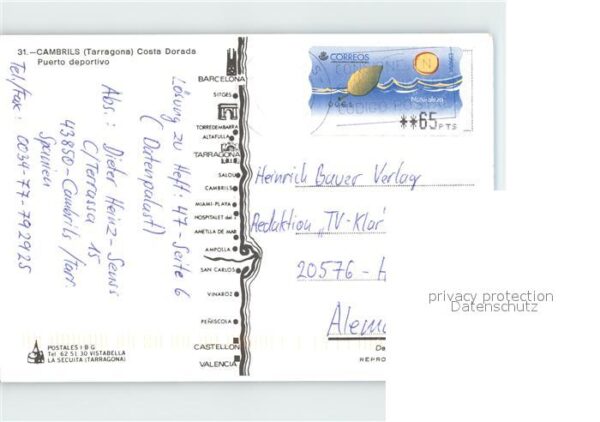 31.—CAMBRILS (Tarragona) Costa Dorada
Puerto deportivo
Lösung zu Heft: 47 - Seite 6
( Datenpalast )
Abs.: Dieter Heinz-
C/Terrassa 15
43850-Cambrils /Tarr.
Spanien
Tel/Fax: 0034-77-792925
BARCELONA
SITGES
TORREDEMBARRA
ALTAFULLA
TARRAGONA
SALOU
CAMBRILS
MIAMI-PLAYA
HOSPITALET del I
AMETLLA DE MAR
AMPOLLA
SAN CARLOS
VINAROZ
PEÑISCOLA
CASTELLON
VALENCIA
CORREOS
Naturaleza
**65 PTS
Heinrich Bauer Verlag
Redaktion „TV-Klar"
20576 - H
Alema
De
REPRO
POSTALES I B G
Tel 62 51 30 VISTABELLA
LA SECUITA (TARRAGONA)
privacy protection
Datenschutz